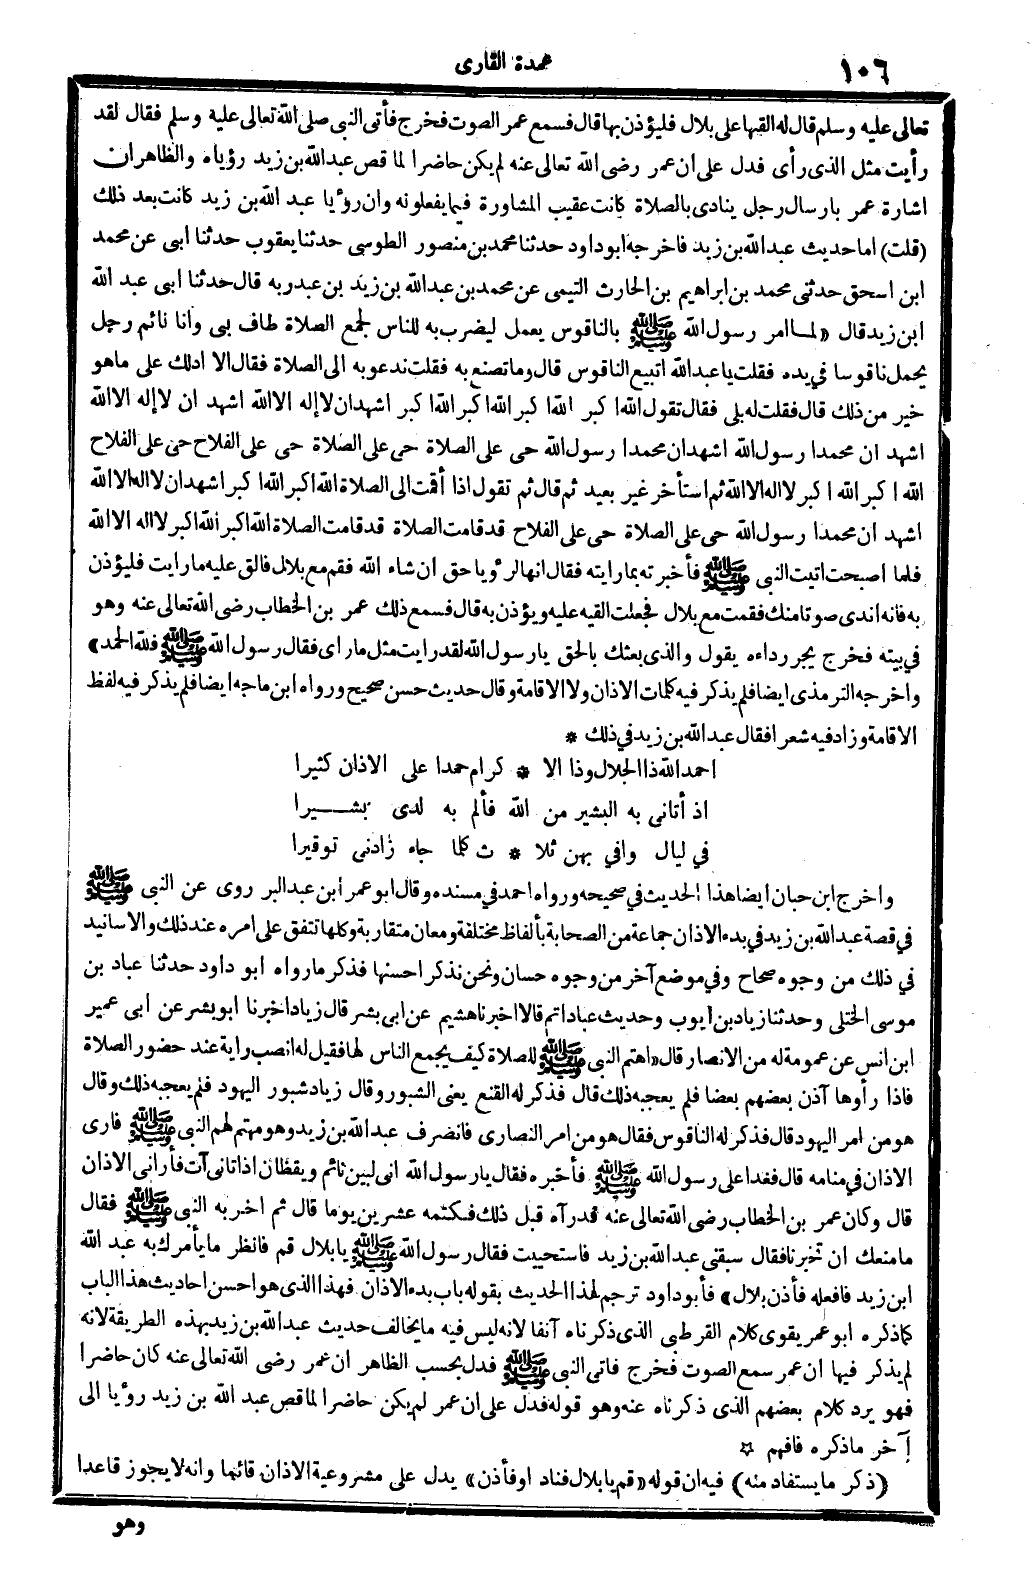 ١٠٦
عمدة القارى
تعالى عليه وسلم قال له القها على بلال فليؤذن بها قال فسمع عمر الصوت فخرج فأتى النبى صلى الله تعالى عليه وسلم فقال لقد
رأيت مثل الذى رأى فدل على ان عمر رضى الله تعالى عنه لم يكن حاضرا لما قص عبد الله بن زيد رؤياه والظاهر ان
اشارة عمر بارسال رجل ينادى بالصلاة كانت عقيب المشاورة فيما يفعلونه وان رؤيا عبد الله بن زيد كانت بعد ذلك
(قلت) اما حديث عبد الله بن زيد فاخرجه ابو داود حدثنا محمد بن منصور الطوسى حدثنا يعقوب حدثنا ابى عن محمد
ابن اسحق حدثنى محمد بن ابراهيم بن الحارث التيمى عن محمد بن عبد الله بن زيد بن عبد ربه قال حدثنا ابى عبد الله
ابن زيد قال «لما امر رسول الله ﷺ بالناقوس يعمل ليضرب به للناس لجمع الصلاة طاف بى وأنا نائم رجل
يحمل ناقوسا في يده فقلت يا عبد الله اتبيع الناقوس قال وما تصنع به فقلت ندعو به الى الصلاة فقال الا ادلك على ماهو
خير من ذلك قال فقلت له بلى فقال تقول الله اكبر الله اكبر الله اكبر الله اكبر اشهد ان لا إله الا الله اشهد ان لا إله الا الله
اشهد ان محمدا رسول الله اشهد ان محمدا رسول الله حى على الصلاة حى على الصلاة حى على الفلاح حى على الفلاح
الله اكبر الله اكبر لا اله الا الله ثم استأخر غير بعيد ثم قال ثم تقول اذا أقمت الى الصلاة الله اكبر الله اكبر اشهد ان لا اله الا الله
اشهد ان محمدا رسول الله حى على الصلاة حى على الفلاح قد قامت الصلاة قد قامت الصلاة الله اكبر الله اكبر لا اله الا الله
فلما اصبحت اتيت النبى ﷺ فأخبرته بما رايته فقال انها لرؤيا حق ان شاء الله فقم مع بلال فالق عليه ما رايت فليؤذن
به فانه اندى صوتا منك فقمت مع بلال فجعلت القيه عليه ويؤذن به قال فسمع ذلك عمر بن الخطاب رضى الله تعالى عنه وهو
في بيته فخرج يجر رداءه يقول والذى بعثك بالحق يارسول الله لقد رايت مثل ما راى فقال رسول الله ﷺ فلله الحمد»
واخرجه الترمذى ايضا فلم يذكر فيه كلمات الاذان ولا الاقامة وقال حديث حسن صحيح ورواه ابن ماجه ايضا فلم يذكر فيه لفظ
الاقامة وزاد فيه شعرا فقال عبد الله بن زيد في ذلك *
احمد الله ذا الجلال وذا الا * كرام حمدا على الاذان كثيرا
اذ أتانى به البشير من الله فألم به لدى بشيرا
في ليال وافي بهن ثلا * ث كلما جاء زادنى توقيرا
واخرج ابن حبان ايضا هذا الحديث في صحيحه ورواه احمد في مسنده وقال ابو عمر ابن عبد البر روى عن النبى ﷺ
في قصة عبد الله بن زيد في بدء الاذان جماعة من الصحابة بألفاظ مختلفة ومعان متقاربة وكلها تتفق على امره عند ذلك والاسانيد
في ذلك من وجوه صحاح وفي موضع آخر من وجوه حسان ونحن نذكر احسنها فذكر مارواه ابو داود حدثنا عباد بن
موسى الختلى وحدثنا زياد بن ايوب وحديث عباد اتم قالا اخبرنا هشيم عن ابى بشر قال زياد اخبرنا ابو بشر عن ابى عمير
ابن انس عن عمومة له من الانصار قال «اهتم النبى ﷺ للصلاة كيف يجمع الناس لها فقيل له انصب راية عند حضور الصلاة
فاذا رأوها آذن بعضهم بعضا فلم يعجبه ذلك قال فذكر له القنع يعنى الشبور وقال زياد شبور اليهود فلم يعجبه ذلك وقال
هو من امر اليهود قال فذكر له الناقوس فقال هو من امر النصارى فانصرف عبد الله بن زيد وهو مهتم لهم النبى ﷺ فارى
الاذان في منامه قال فغدا على رسول الله ﷺ فأخبره فقال يارسول الله انى لبين نائم ويقظان اذ اتانى آت فأرانى الاذان
قال وكان عمر بن الخطاب رضى الله تعالى عنه قد رآه قبل ذلك فكتمه عشرين يوما قال ثم اخبر به النبى ﷺ فقال
مامنعك ان تخبرنا فقال سبقنى عبد الله بن زيد فاستحييت فقال رسول الله ﷺ يابلال قم فانظر ما يأمرك به عبد الله
ابن زيد فافعله فأذن بلال» فأبو داود ترجم لهذا الحديث بقوله باب بدء الاذان فهذا الذى هو احسن احاديث هذا الباب
كما ذكره ابو عمر يقوى كلام القرطبى الذى ذكرناه آنفا لانه ليس فيه ما يخالف حديث عبد الله بن زيد بهذه الطريقة لانه
لم يذكر فيها ان عمر سمع الصوت فخرج فاتى النبى ﷺ فدل بحسب الظاهر ان عمر رضى الله تعالى عنه كان حاضرا
فهو يرد كلام بعضهم الذى ذكرناه عنه وهو قوله فدل على ان عمر لم يكن حاضرا لما قص عبد الله بن زيد رؤيا الى
آخر ماذكره فافهم ☆
(ذكر ما يستفاد منه) فيه ان قوله «قم يا بلال فناد او فأذن» يدل على مشروعية الاذان قائما وانه لايجوز قاعدا
وهو